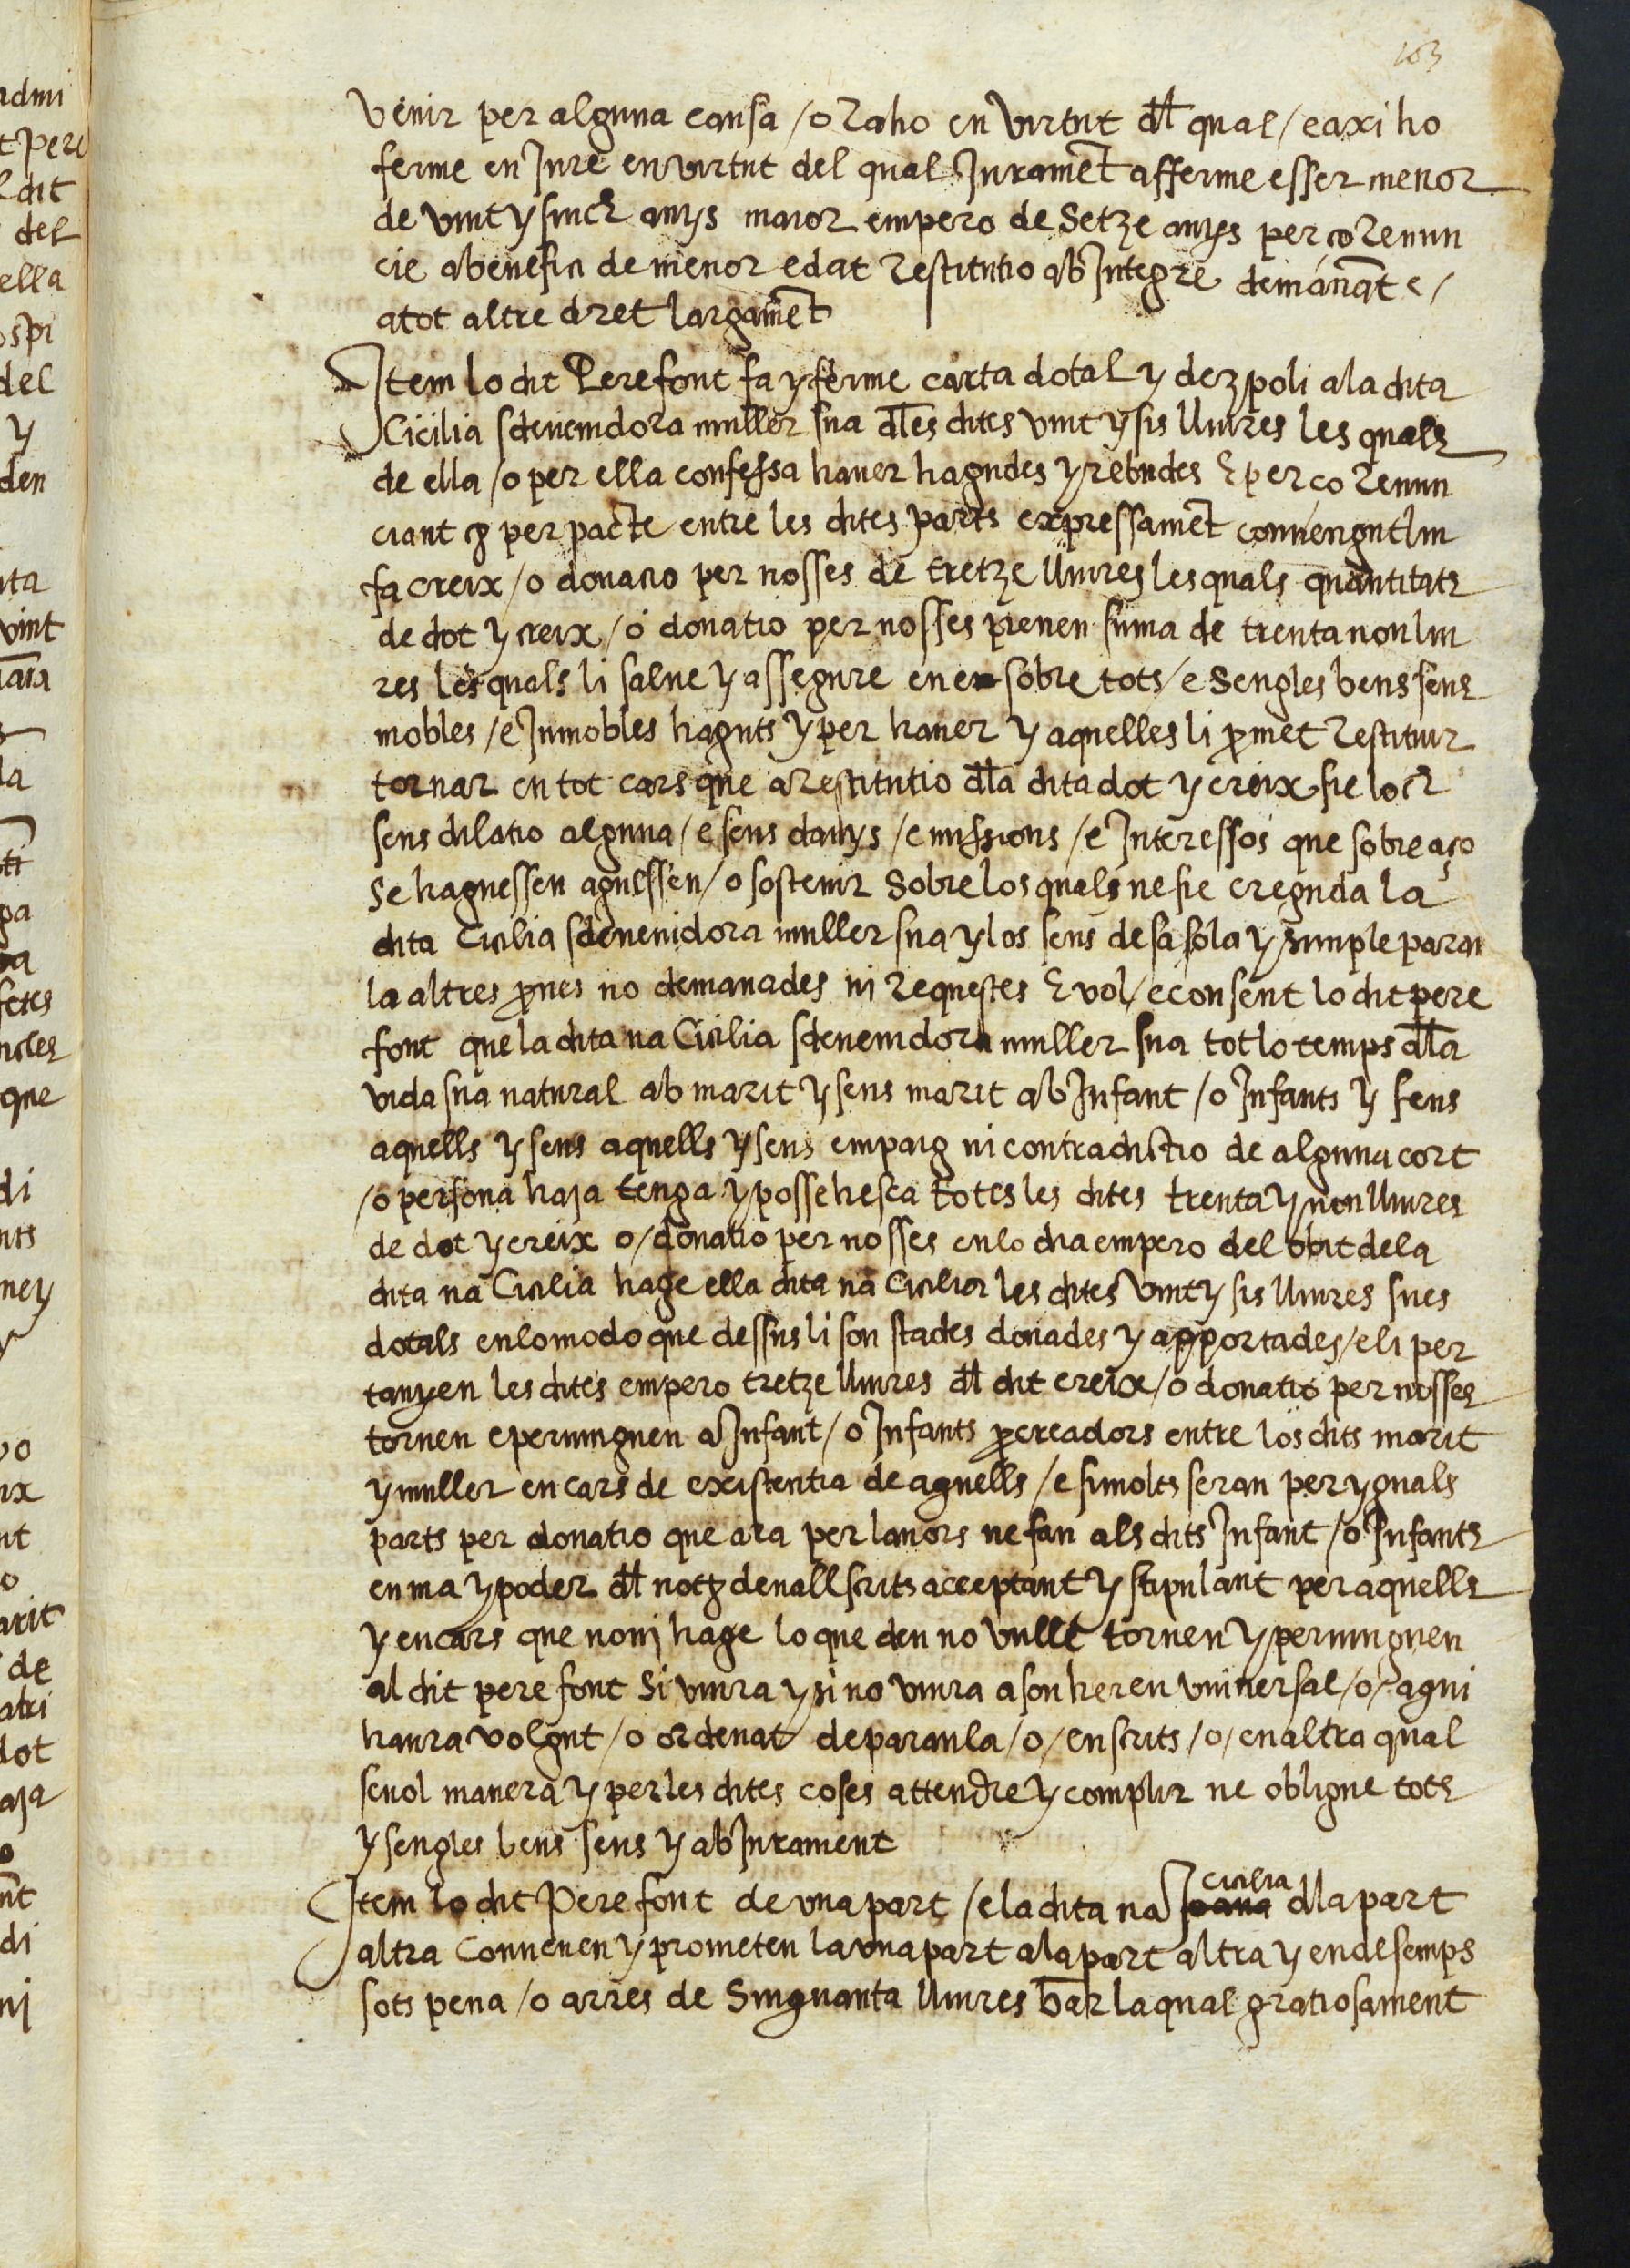 103
venir per alguna causa / o Raho en virtut dl qual / e axi ho
ferme en Jure en virtut del qual Jurament afferme esser menor
de vint y sinch anys maior empero de Setze anys per ço Renun
cie a benefici de menor edat Restitutio ab Integre demanant e /
a tot altre dret largament
Item lo dit Pere font fa y ferme carta dotal y de espoli a la dita
Cicilia sdevenidora muller sua dles dites vint y sis lliures les quals
de ella / o per ella confessa haver hagudes y rebudes E per ço Renun
ciant per pacte entre les dites parts expressament convengut lin
fa creix / o donacio per nosses de tretze lliures les quals quantitats
de dot y creix / o donatio per nosses prenen suma de trenta nou liu
res les quals li salve y assegure en e sobre tots / e Sengles bens seus
mobles / e Inmobles haguts y per haver y aquelles li promet Restituir
tornar en tot cars que a Restitutio dla dita dot y creix sie loch
sens dilatio alguna / e sens danys / e missions / e Interessos que sobre aço
Se haguessen aguessen / o sostenir Sobre los quals ne sie creguda la
dita Cicilia sdevenidora muller sua y los seus de sa sola y simple parau
la altres prones no demanades ni Requestes E vol / e consent lo dit pere
font que la dita na Cicilia sdevenidora muller sua tot lo temps dla
vida sua natural ab marit y sens marit ab Infant / o Infants y sens
aquells y sens aquells y sens empaig ni contradictio de alguna cort
/ o persona haja tenga y possehesca totes les dites trenta y nou lliures
de dot y creix o / donatio per nosses en lo dia empero del obit de la
dita na Cicilia hage ella dita na Cicilia les dites vint y sis lliures sues
dotals en lo modo que dessus li son stades donades y apportades / e li per
tanyen les dites empero tretze lliures dl dit creix / o donatio per nosses
tornen e pervinguen a Infant / o Infants procreadors entre los dits marit
y muller en cars de existentia de aquells / e si molts seran per yguals
parts per donatio que ara per lavors ne fan als dits Infant / o Infants
en ma y poder dl not devall scrits acceptant y stipulant per aquells
y en cars que noni hage lo que deu no vulle tornen y pervinguen
al dit pere font Si viura y si no viura a son hereu universal / o / a qui
haura volgut / o ordenat de paraula / o / en scrits / o / en altra qual
sevol manera y per les dites coses attendre y complir ne obligue tots
y sengles bens seus y ab Jurament
Item lo dit Pere font de una part / e la dita na Joana Cicilia dla part
altra Convenen y prometen la una part a la part altra y endesemps
sots pena / o arres de Sinquanta lliures bar la qual gratiosament